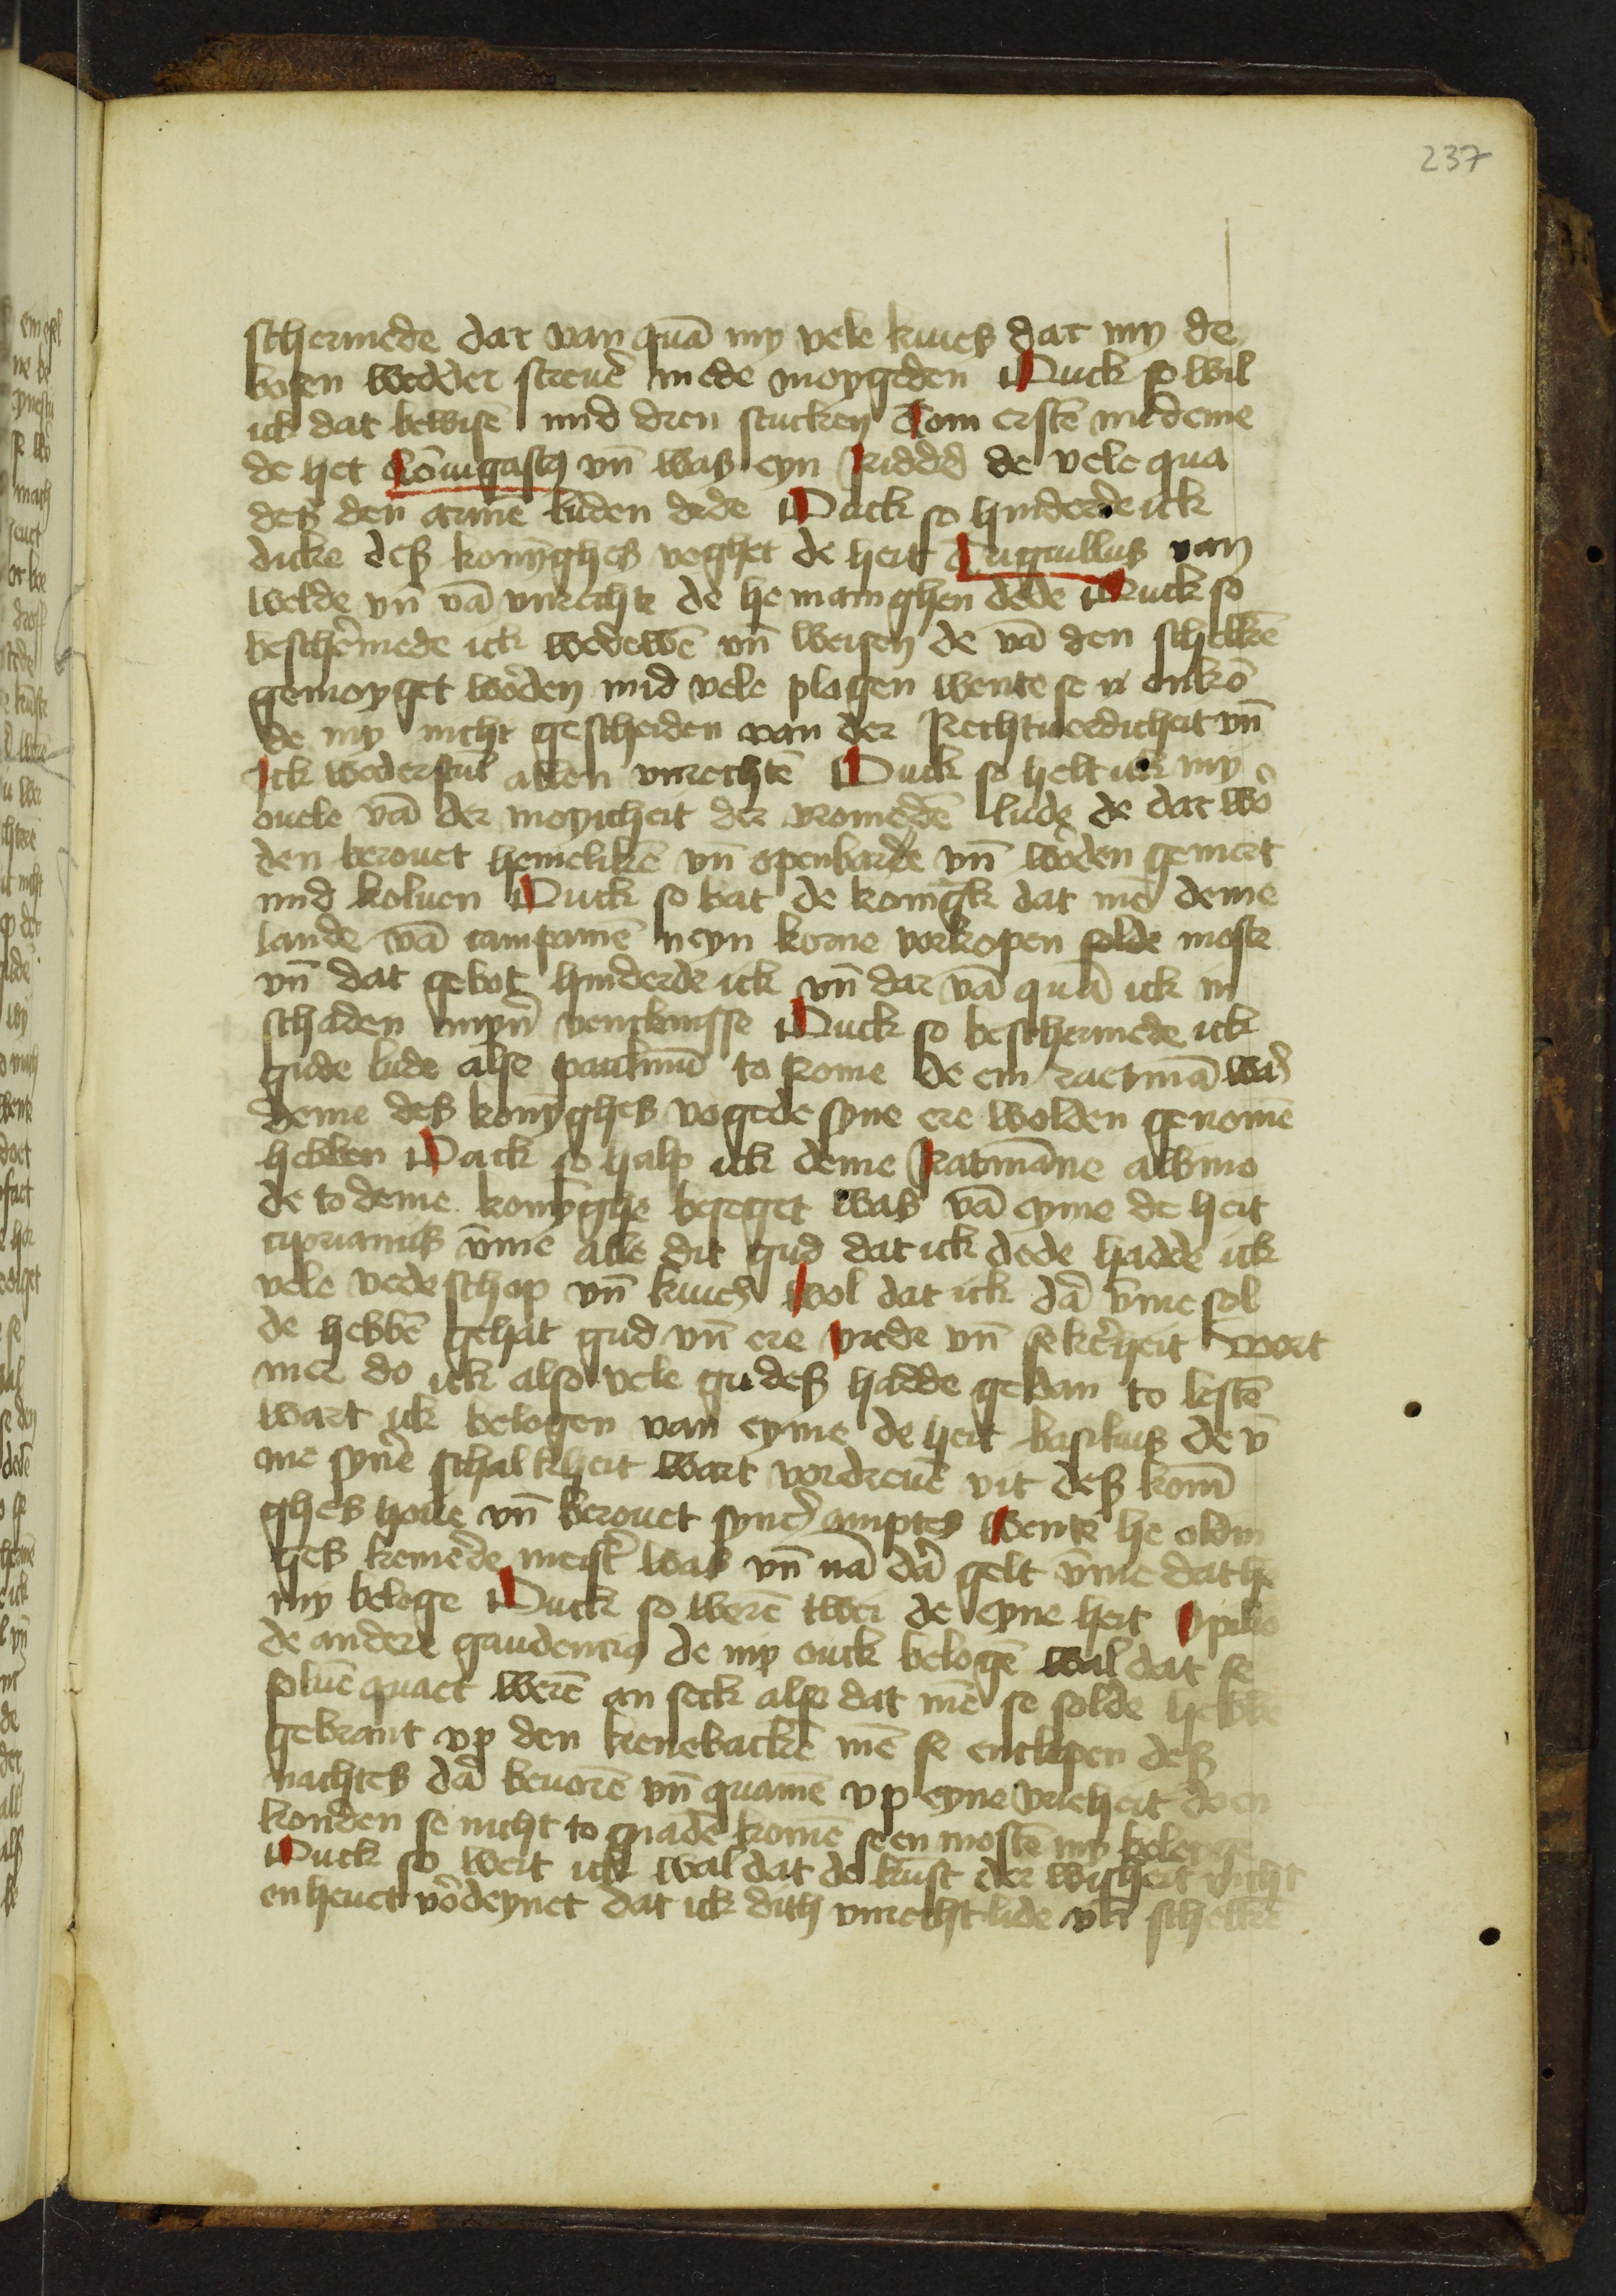 237
schermede dat van quā my vele kiues dat my de
bosen wedder streuē mede moygeden Ouck so wil
ick dat bewisē mid dren stucken Tom erstē mid eme
de het Cōuigastꝯ vn̄ was eyn Ridder de vele qua
des den armē luden dede Ouck so hinderde ick
dicke des konyghes voghet de heit Triguillus van
welde vn̄ vā vnrechte de he mannighen dede Ouck so
beschermede ick wedewē vn̄ weisen de vā den schelkē
gemoyget worden mid vele plagen wente se n enkō
de my nicht gescheiden van der Rechtuerdicheit vn̄
Ick wederstūt allen vnrechtē Ouck so helt ick my
ouele vā der moyicheit der vromedē lude de dat wor
den berouet hemelikē vn̄ openbarde vn̄ worden gemert
mid koluen Ouck so bat de konīgk dat mē deme
lande vā campamē neyn korne vorkopen solde moste
vn̄ dat gebot hinderde ick vn̄ dar vā quā ick in
schaden myner venckenisse Ouck so beschermede ick
gude lude alse paulinū to Rome de em raetmā was
deme des konyghes vogede syne ere wolden genomē
hebben Ouck so halp ick deme Ratmāne albino
de to deme konyghe beseget was vā eyme de heit
ciprianus vm̄e alle dit gud dat ick dede hadde ick
vele vedeschop vn̄ kiues Wol dat ick dar vm̄e sol
de hebbē gehat gud vn̄ ere vrede vn̄ sekerheit Vort
mer do ick also vele gudes hadde gedan to lestē
wart ick belogen van eyme de heit basilius de v̄
me syner schalkheit wart vordreuē vit des konī
ghes houe vn̄ berouet syner amptes Wente he oldin
ges kemerde meister was vn̄ nā dar gelt vm̄e dat he
my beloge Ouck so werē twei de eyne heit Opilio
de andere gaudencius de my ouck belogē wal dat se
soluē quaet werē an seck also dat mē se solde hebbē
gebrant vp den kenebackē mē se entlepen des
nachtes dar beuorē vn̄ quamē vp eyne vrieheit do en
konden se nicht to gnadē komē se en mostē my belegge
Ouck so weit ick wal dat de kunst der wisheit nicht
en heuet vordeynet dat ick dith vnrecht lide vn̄ schelkē